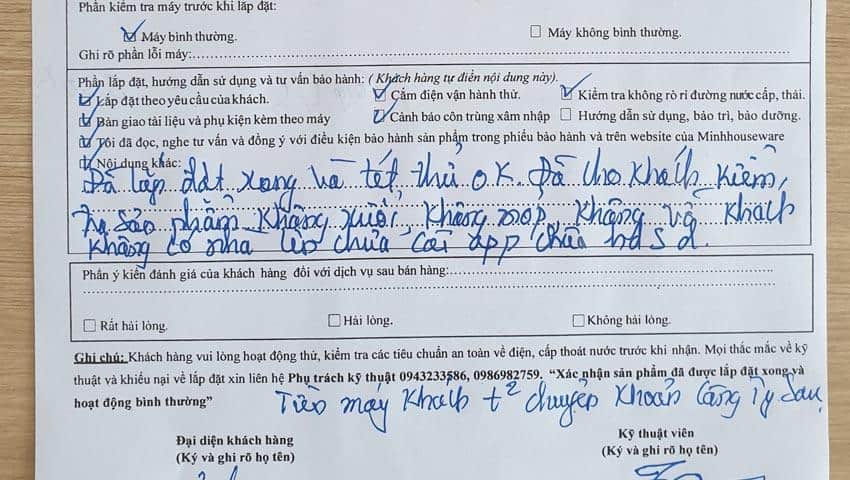 Phần kiểm tra máy trước khi lắp đặt:
Máy bình thường. Máy không bình thường.
Ghi rõ phần lỗi máy:
Phần lắp đặt, hướng dẫn sử dụng và tư vấn bảo hành: ( Khách hàng tự điền nội dung này).
Lắp đặt theo yêu cầu của khách. Cắm điện vận hành thử. Kiểm tra không rò rỉ đường nước cấp, thải.
Bàn giao tài liệu và phụ kiện kèm theo máy Cảnh báo côn trùng xâm nhập Hướng dẫn sử dụng, bảo trì, bảo dưỡng.
Tôi đã đọc, nghe tư vấn và đồng ý với điều kiện bảo hành sản phẩm trong phiếu bảo hành và trên website của Minhhouseware
Nội dung khác:
Đã lắp đặt xong và tét thử O.K. Đã cho khách kiểm,
tra sản phẩm không xước, không móp, không vỡ khách
không có nhà lên chưa cài app chưa hdsd.
Phần ý kiến đánh giá của khách hàng đối với dịch vụ sau bán hàng:
Rất hài lòng. Hài lòng. Không hài lòng.
Ghi chú: Khách hàng vui lòng hoạt động thử, kiểm tra các tiêu chuẩn an toàn về điện, cấp thoát nước trước khi nhận. Mọi thắc mắc về kỹ
thuật và khiếu nại về lắp đặt xin liên hệ Phụ trách kỹ thuật 0943233586, 0986982759. “Xác nhận sản phẩm đã được lắp đặt xong và
hoạt động bình thường”
Tiền máy khách t² chuyển khoản công ty sau
Đại diện khách hàng Kỹ thuật viên
(Ký và ghi rõ họ tên) (Ký và ghi rõ họ tên)